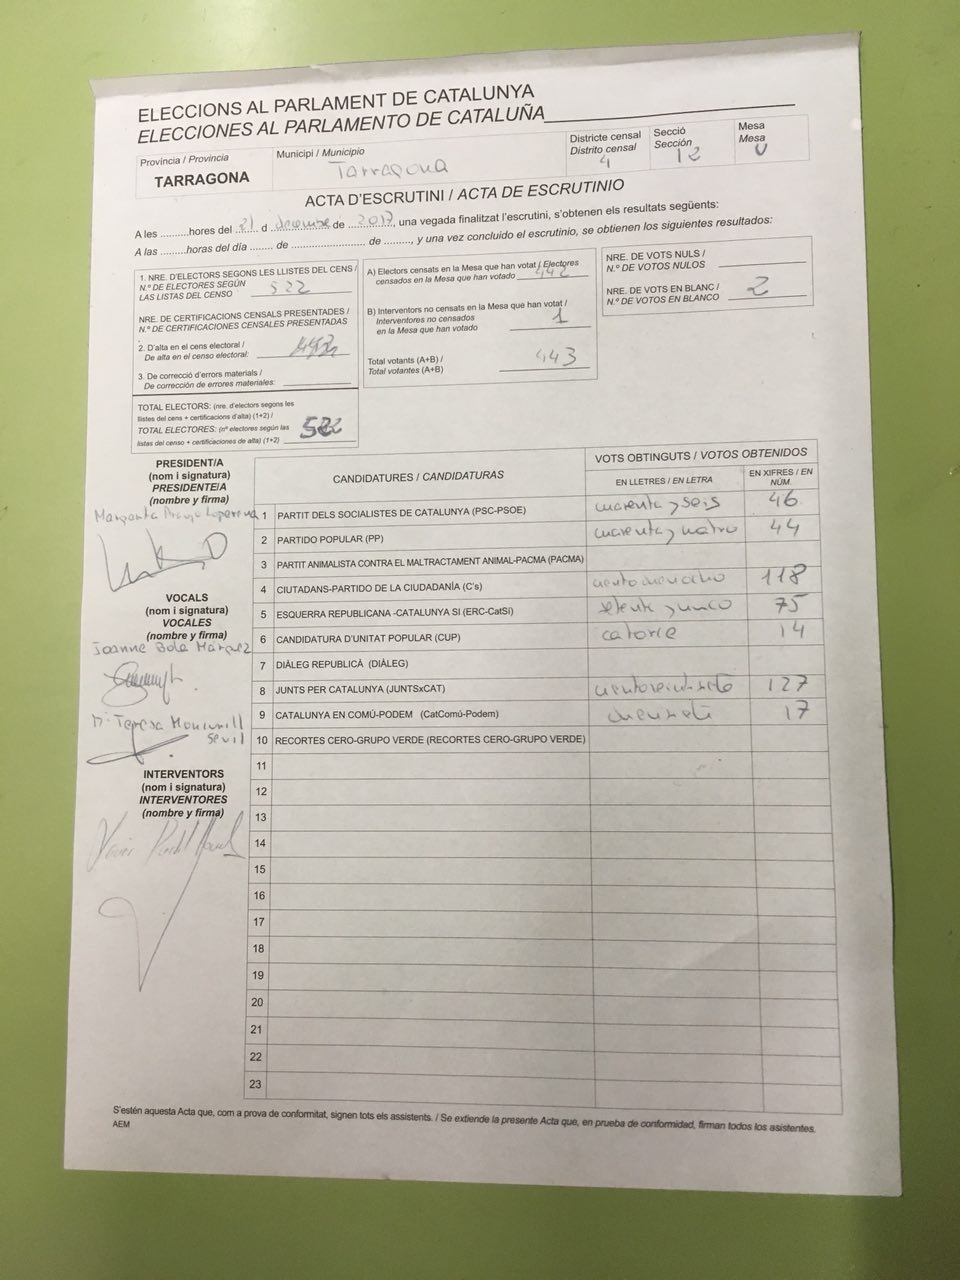 ELECCIONS AL PARLAMENT DE CATALUNYA
ELECCIONES AL PARLAMENTO DE CATALUÑA
Província / Provincia
TARRAGONA
Municipi / Municipio
Tarragona
Districte censal
Distrito censal
4
Secció
Sección
12
Mesa
Mesa
U
ACTA D'ESCRUTINI / ACTA DE ESCRUTINIO
A les ..........hores del 21 d desembre de 2017, una vegada finalitzat l'escrutini, s'obtenen els resultats següents:
A las .........horas del día ........ de ......................... de ........., y una vez concluido el escrutinio, se obtienen los siguientes resultados:
1. NRE. D'ELECTORS SEGONS LES LLISTES DEL CENS /
N.º DE ELECTORES SEGÚN
LAS LISTAS DEL CENSO 522
NRE. DE CERTIFICACIONS CENSALS PRESENTADES /
N.º DE CERTIFICACIONES CENSALES PRESENTADAS
2. D'alta en el cens electoral /
De alta en el censo electoral:
3. De correcció d'errors materials /
De corrección de errores materiales:
TOTAL ELECTORS: (nre. d'electors segons les
llistes del cens + certificacions d'alta) (1+2) /
TOTAL ELECTORES: (nº electores según las
listas del censo + certificaciones de alta) (1+2) 522
A) Electors censats en la Mesa que han votat / Electores
censados en la Mesa que han votado 442
B) Interventors no censats en la Mesa que han votat /
Interventores no censados
en la Mesa que han votado 1
Total votants (A+B) /
Total votantes (A+B) 443
NRE. DE VOTS NULS /
N.º DE VOTOS NULOS
NRE. DE VOTS EN BLANC /
N.º DE VOTOS EN BLANCO 2
PRESIDENT/A
(nom i signatura)
PRESIDENTE/A
(nombre y firma)
Margarita
VOCALS
(nom i signatura)
VOCALES
(nombre y firma)
Joanne Bola Márquez
Mª Teresa
INTERVENTORS
(nom i signatura)
INTERVENTORES
(nombre y firma)
CANDIDATURES / CANDIDATURAS
VOTS OBTINGUTS / VOTOS OBTENIDOS
EN LLETRES / EN LETRA
EN XIFRES / EN NÚM.
1 PARTIT DELS SOCIALISTES DE CATALUNYA (PSC-PSOE) cuarenta y seis 46
2 PARTIDO POPULAR (PP) cuarenta y cuatro 44
3 PARTIT ANIMALISTA CONTRA EL MALTRACTAMENT ANIMAL-PACMA (PACMA)
4 CIUTADANS-PARTIDO DE LA CIUDADANÍA (C's) ciento dieciocho 118
5 ESQUERRA REPUBLICANA -CATALUNYA SI (ERC-CatSí) setenta y cinco 75
6 CANDIDATURA D'UNITAT POPULAR (CUP) catorce 14
7 DIÀLEG REPUBLICÀ (DIÀLEG)
8 JUNTS PER CATALUNYA (JUNTSxCAT) cientoveintisiete 127
9 CATALUNYA EN COMÚ-PODEM (CatComú-Podem) diecisiete 17
10 RECORTES CERO-GRUPO VERDE (RECORTES CERO-GRUPO VERDE)
11
12
13
14
15
16
17
18
19
20
21
22
23
S'estén aquesta Acta que, com a prova de conformitat, signen tots els assistents. / Se extiende la presente Acta que, en prueba de conformidad, firman todos los asistentes.
AEM